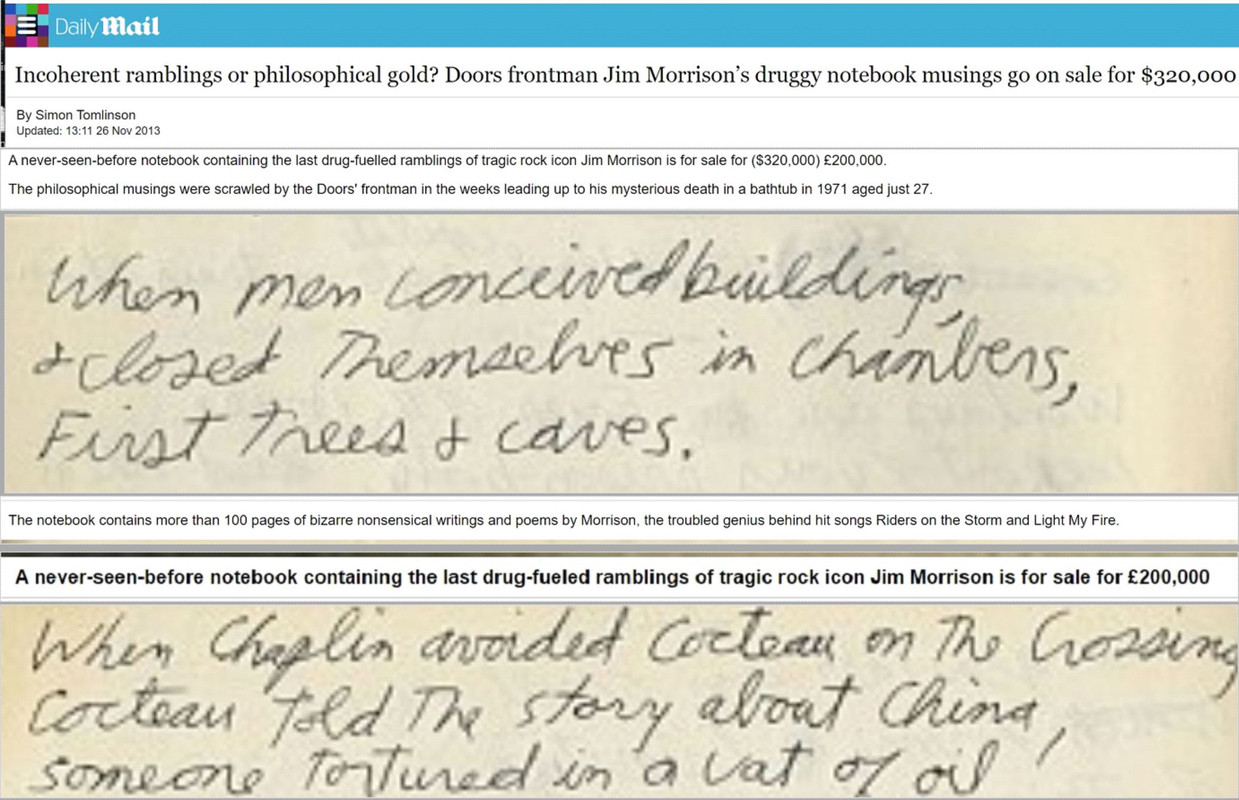 Daily Mail
Incoherent ramblings or philosophical gold? Doors frontman Jim Morrison's druggy notebook musings go on sale for $320,000
By Simon Tomlinson
Updated: 13:11 26 Nov 2013
A never-seen-before notebook containing the last drug-fuelled ramblings of tragic rock icon Jim Morrison is for sale for ($320,000) £200,000.
The philosophical musings were scrawled by the Doors' frontman in the weeks leading up to his mysterious death in a bathtub in 1971 aged just 27.
When men conceived buildings,
& closed Themselves in chambers,
First Trees & caves.
The notebook contains more than 100 pages of bizarre nonsensical writings and poems by Morrison, the troubled genius behind hit songs Riders on the Storm and Light My Fire.
A never-seen-before notebook containing the last drug-fueled ramblings of tragic rock icon Jim Morrison is for sale for £200,000
When Chaplin avoided Cocteau on The Crossing
Cocteau Told The story about China,
someone Tortured in a vat of oil